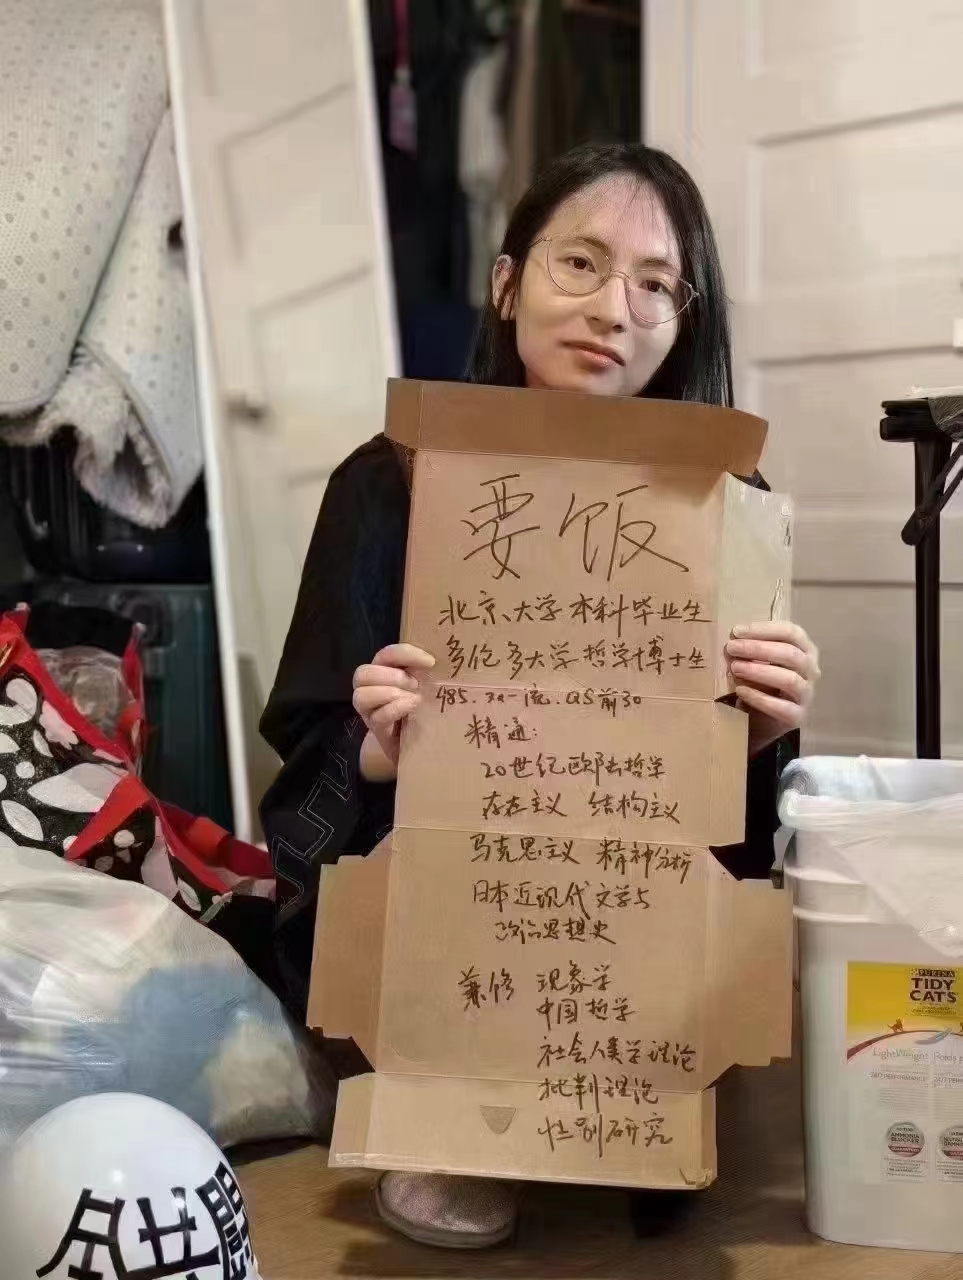 要饭
北京大学本科毕业生
多伦多大学哲学博士生
985.双一流.QS前30
精通:
20世纪欧陆哲学
存在主义 结构主义
马克思主义 精神分析
日本近现代文学与
政治思想史
兼修 现象学
中国哲学
社会人类学理论
批判理论
性别研究
PURINA
TIDY
CATS
LightWeight Poids
24/7 PERFORMANCE
AMMONIA
BLOCKER
全共闘